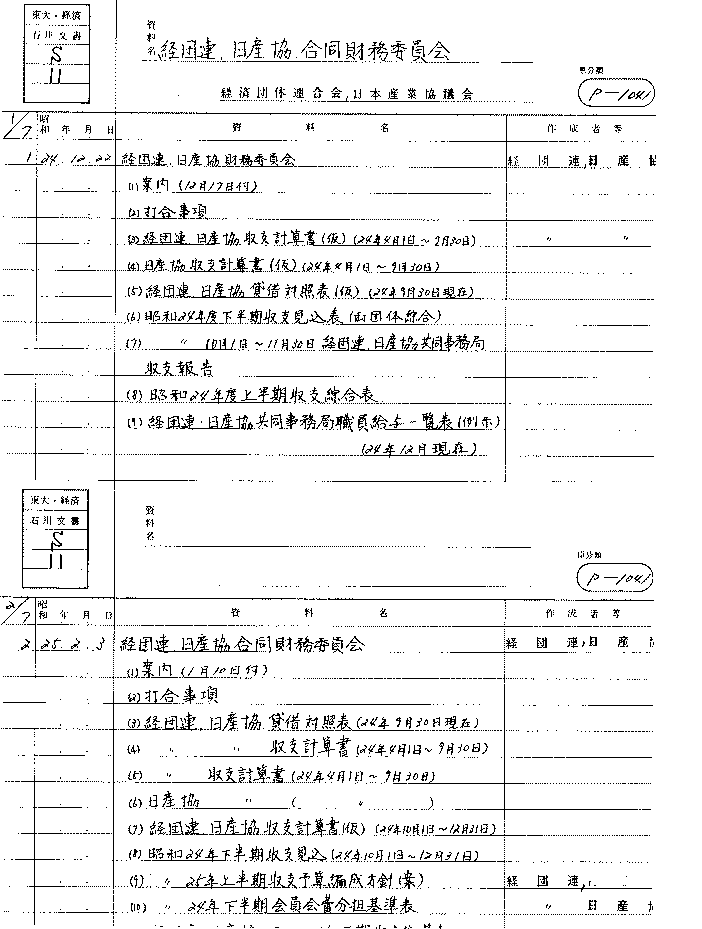 東大・経済
石川文書
資料名 経団連、日産協、合同財務委員会
経済団体連合会,日本産業協議会
原分類
P-1041
1/7 昭和 年 月 日 資料名 作成者等
1 24.12.22 経団連、日産協財務委員会 経団連,日産協
(1)案内(12月17日付)
(2)打合事項
(3)経団連、日産協収支計算書(仮)(24年4月1日〜9月30日) 〃 〃
(4)日産協収支計算書(仮)(24年4月1日〜9月30日)
(5)経団連、日産協貸借対照表(仮)(24年9月30日現在)
(6)昭和24年度下半期収支見込表(両団体綜合)
(7) 〃 (10月1日〜11月30日 経団連、日産協共同事務局
収支報告
(8)昭和24年度上半期収支綜合表
(9)経団連・日産協共同事務局職員給与一覧表(例示)
(24年12月現在)
東大・経済
石川文書
資料名
原分類
P-1041
2/7 昭和 年 月 日 資料名 作成者等
2 25.2.3 経団連、日産協合同財務委員会 経団連,日産
(1)案内(1月10日付)
(2)打合事項
(3)経団連、日産協貸借対照表(24年9月30日現在)
(4) 〃 〃 収支計算書(24年4月1日〜9月30日)
(5) 〃 収支計算書(24年4月1日〜9月30日)
(6)日産協 〃 ( 〃 )
(7)経団連、日産協収支計算書(仮)(24年10月1日〜12月31日)
(8)昭和24年下半期収支見込(24年10月1日〜12月31日)
(9) 〃 25年上半期収支予算編成方針(案) 経団連,
(10) 〃 24年下半期会員会費分担基準表 〃 日産